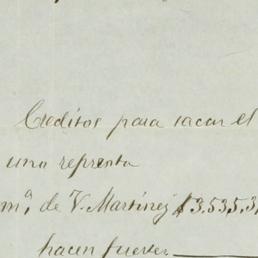 Creditos para sacar el
una represta
mª, de V. Martinez $3.535,3
hacen fuertes